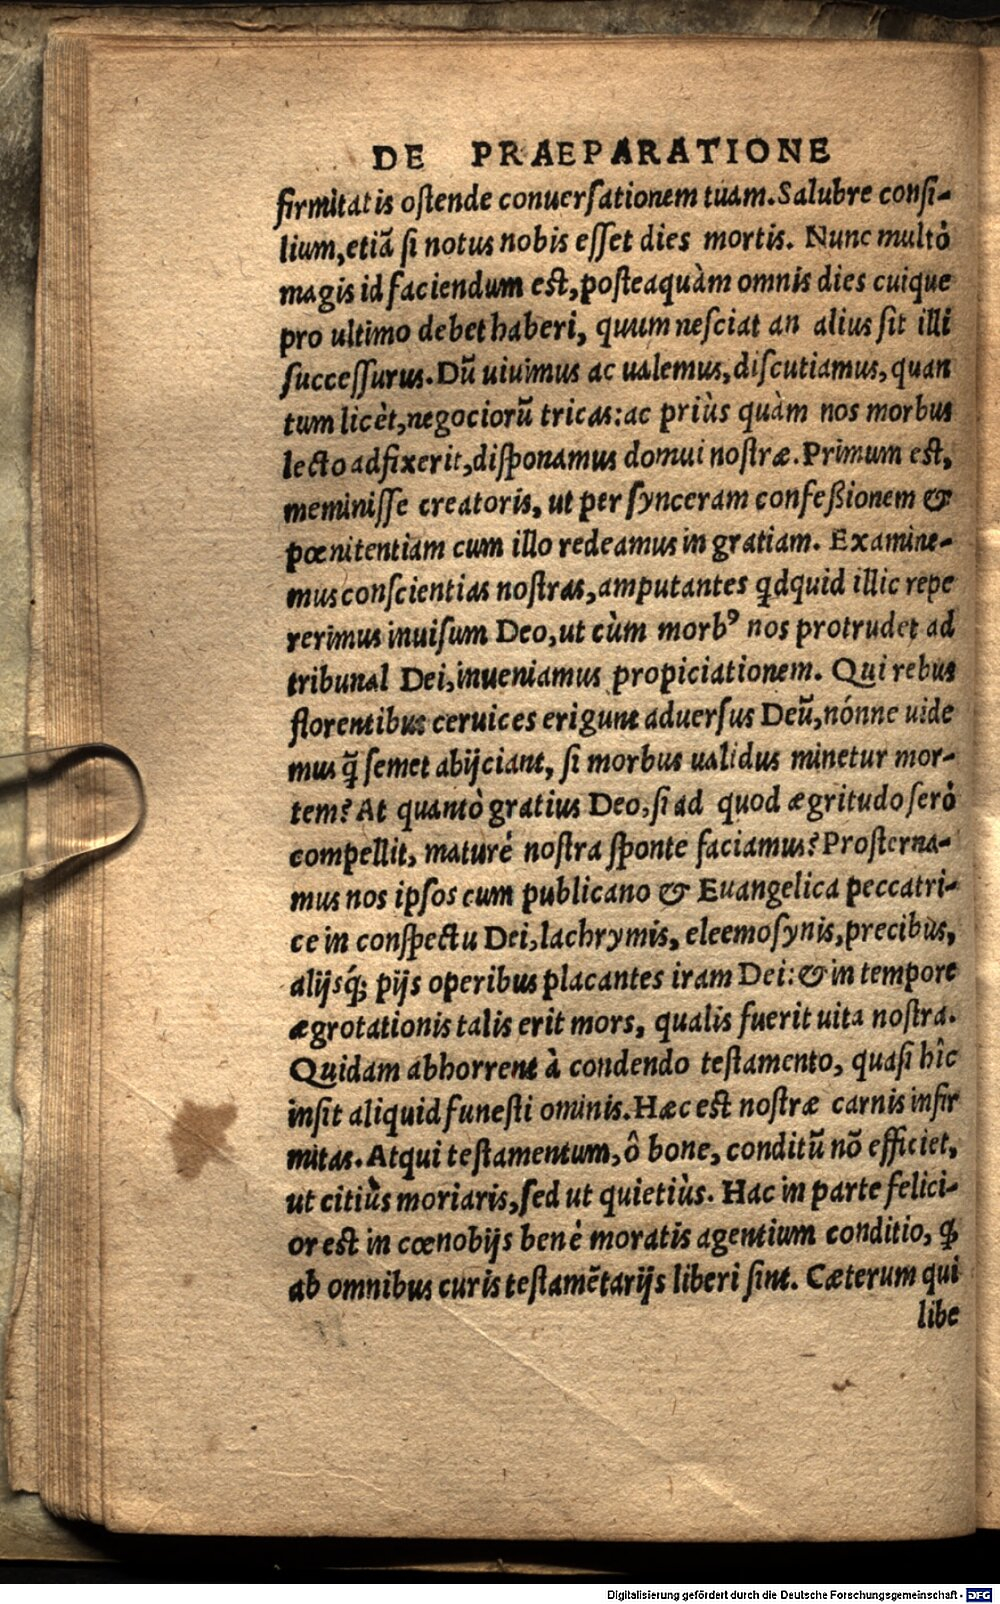 DE PRAEPARATIONE
firmitatis ostende conuersationem tuam. Salubre consi-
lium, etiã si notus nobis esset dies mortis. Nunc multò
magis id faciendum est, posteaquàm omnis dies cuique
pro ultimo debet haberi, quum nesciat an alius sit illi
successurus. Dũ uiuimus ac ualemus, discutiamus, quan
tum licèt, negociorũ tricas: ac priùs quàm nos morbus
lecto adfixerit, disponamus domui nostræ. Primum est,
meminisse creatoris, ut per synceram confeßionem &
pœnitentiam cum illo redeamus in gratiam. Examine-
mus conscientias nostras, amputantes qdquid illic repe
rerimus inuisum Deo, ut cùm morbꝰ nos protrudet ad
tribunal Dei, inueniamus propiciationem. Qui rebus
florentibus ceruices erigunt aduersus Deũ, nónne uide
mus q̃ semet abijciant, si morbus ualidus minetur mor-
tem? At quantò gratius Deo, si ad quod ægritudo serò
compellit, maturè nostra sponte faciamus? Prosterna-
mus nos ipsos cum publicano & Euangelica peccatri-
ce in conspectu Dei, lachrymis, eleemosynis, precibus,
alijsq́; pijs operibus placantes iram Dei: & in tempore
ægrotationis talis erit mors, qualis fuerit uita nostra.
Quidam abhorrent à condendo testamento, quasi hîc
insit aliquid funesti ominis. Hæc est nostræ carnis infir
mitas. Atqui testamentum, ô bone, conditũ nõ efficiet,
ut citiùs moriaris, sed ut quietiùs. Hac in parte felici-
or est in cœnobijs benè moratis agentium conditio, ꝙ
ab omnibus curis testamẽtarijs liberi sint. Cæterum qui
libe
Digitalisierung gefördert durch die Deutsche Forschungsgemeinschaft - DFG